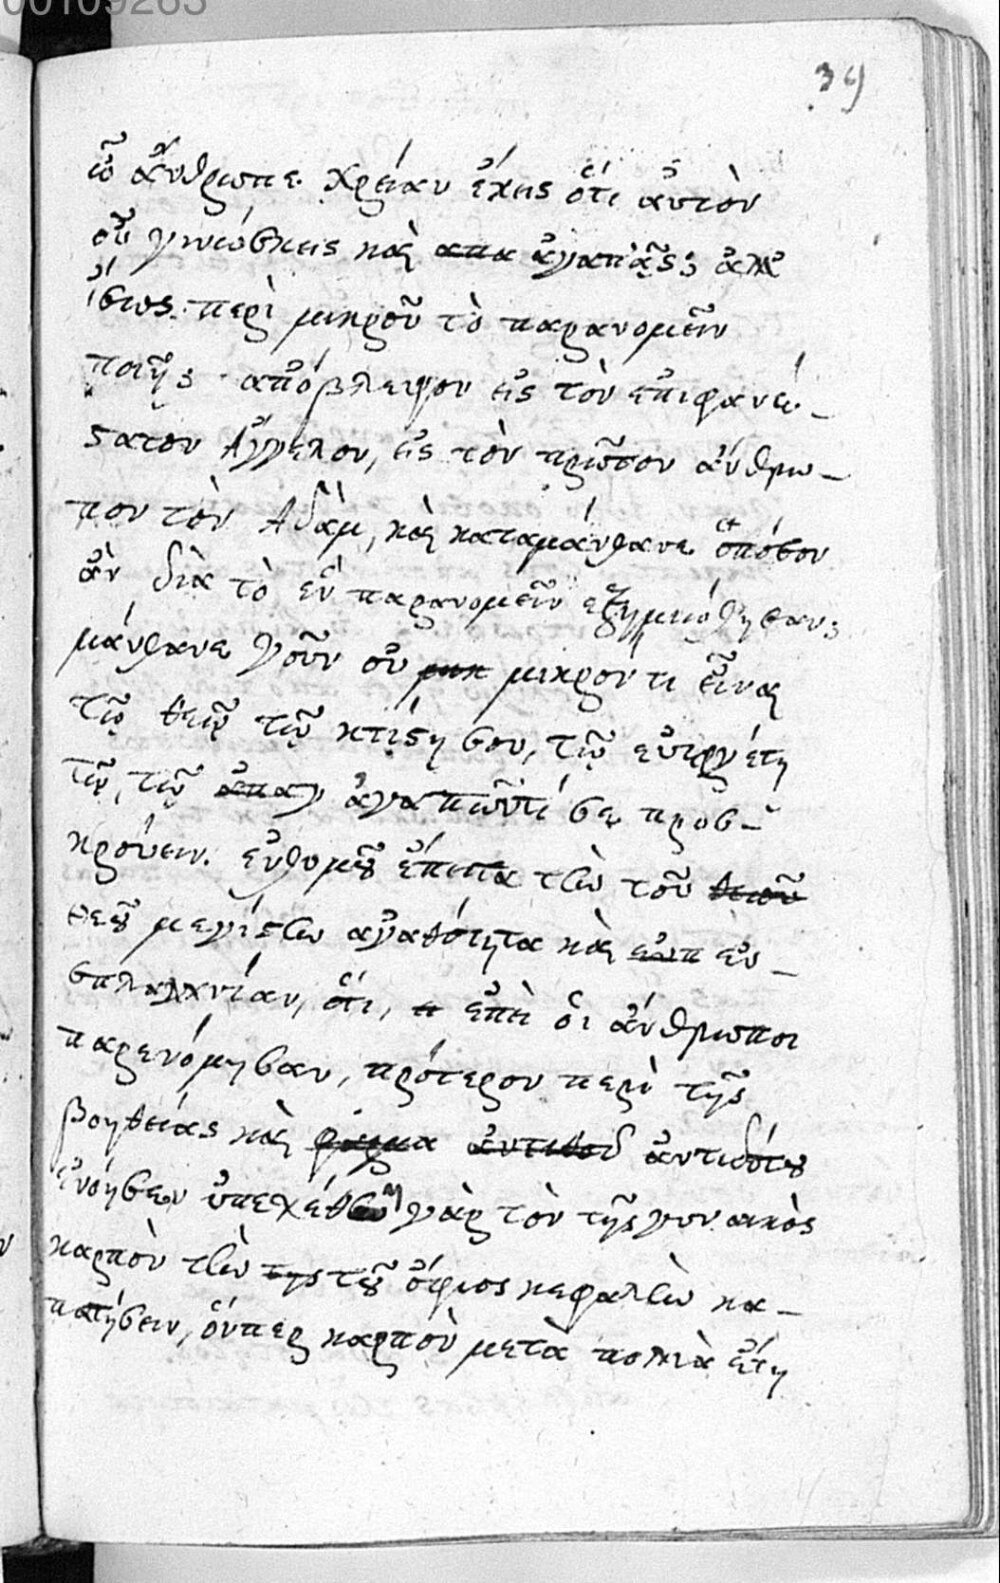 00109263
39
ὦ ἄνθρωπε χρείαν ἔχεις ὅτι αὐτὸν
οὐ γινώσκεις καὶ απα ἀγαπᾷς; ἀλλ'
ἴσως περὶ μικροῦ τὸ παρανομεῖν
ποιῇς. ἀπόβλεψον εἰς τὸν ἐπιφανέ-
στατον Ἄγγελον, εἰς τὸν πρῶτον ἄνθρω-
πον τὸν Ἀδὰμ, καὶ καταμάνθανε ὁπόσον
ἂν διὰ τὸ ἓν παρανομεῖν ἐζημιώθησαν;
μάνθανε γοῦν οὐ μικ μικρόν τι εἶναι
τῷ θεῷ τῷ κτίστῃ σου, τῷ εὐεργέτῃ
τῷ, τῷ ἀπαγ ἀγαπῶντί σε προσ-
κρούειν. εὐθυμοῦ ἔπειτα τὴν τοῦ θεοῦ
θεοῦ μεγίστην ἀγαθότητα καὶ ευσπ εὐ-
σπλαγχνίαν, ὅτι, ε ἐπεὶ οἱ ἄνθρωποι
παρενόμησαν, πρότερον περὶ τῆς
βοηθείας καὶ φαρμα ἀντιδοδ ἀντιδότου
ἐνόησεν ὑπεχέθη γὰρ τὸν τῆς γυναικὸς
καρπὸν τὴν της τοῦ ὄφιος κεφαλὴν κα-
πατήσειν, ὅνπερ καρπὸν μετὰ πολλὰ ἔτη